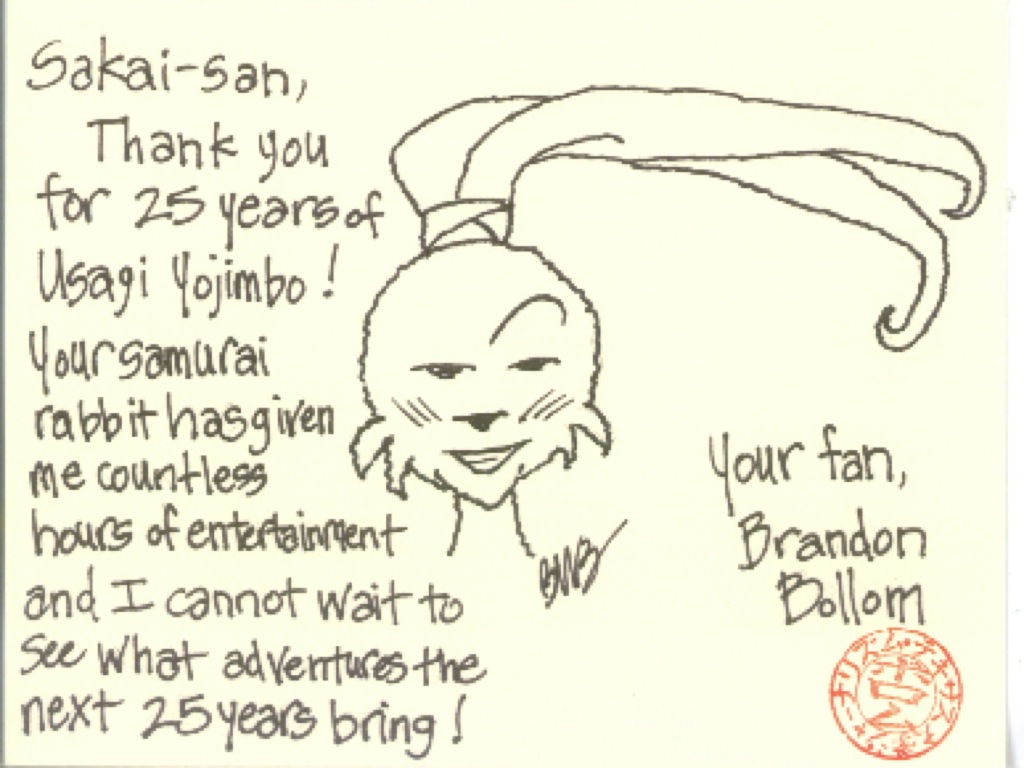 Sakai-san,
Thank you
for 25 years of
Usagi Yojimbo!
Your samurai
rabbit has given
me countless
hours of entertainment
and I cannot wait to
see what adventures the
next 25 years bring!
BWB
Your fan,
Brandon
Bollom